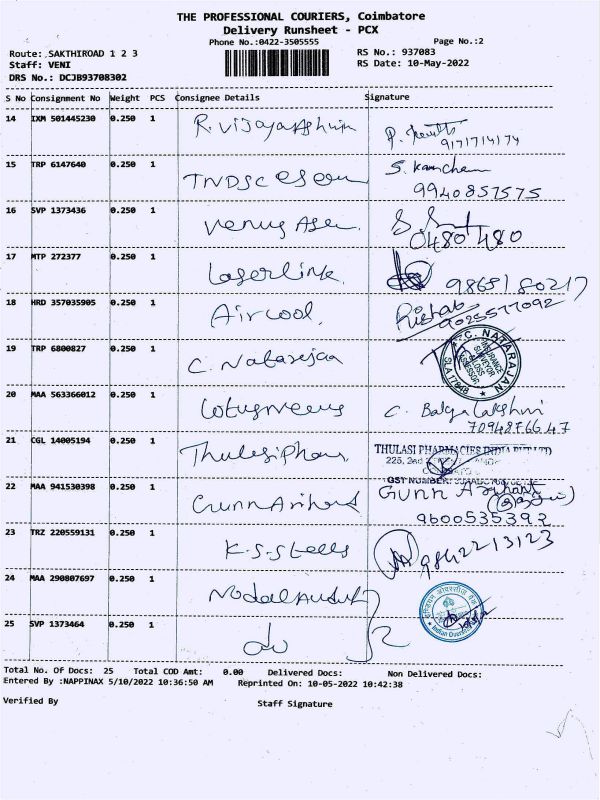 THE PROFESSIONAL COURIERS, Coimbatore
Delivery Runsheet - PCX
Phone No.:0422-3505555 Page No.:2
Route: SAKTHIROAD 1 2 3 RS No.: 937083
Staff: VENI RS Date: 10-May-2022
DRS No.: DCJB93708302
S No Consignment No Weight PCS Consignee Details Signature
14 IXM 501445230 0.250 1 R. 9171714174
15 TRP 6147640 0.250 1 TNDSC S. 9940857575
16 SVP 1373436 0.250 1 Venus 0480480
17 MTP 272377 0.250 1 Laserlink. 9865180217
18 HRD 357035905 0.250 1 Aircool. Rishab 9025577092
19 TRP 6800827 0.250 1 C. Natarajan C. NATARAJAN INSURANCE SURVEYOR & LOSS ASSESSOR SLA 17848
20 MAA 563366012 0.250 1 C. 7094876647
21 CGL 14005194 0.250 1 Thulasi Phar. THULASI PHARMACIES INDIA PVT LTD
225, 2nd
GST NUMBER:
22 MAA 941530398 0.250 1 Gunn Arihant Gunn Arihant
9600535392
23 TRZ 220559131 0.250 1 K.S.Steels 9842213123
24 MAA 290807697 0.250 1 Nodal Indian Overseas
25 SVP 1373464 0.250 1 do
Total No. Of Docs: 25 Total COD Amt: 0.00 Delivered Docs: Non Delivered Docs:
Entered By :NAPPINAX 5/10/2022 10:36:50 AM Reprinted On: 10-05-2022 10:42:38
Verified By Staff Signature